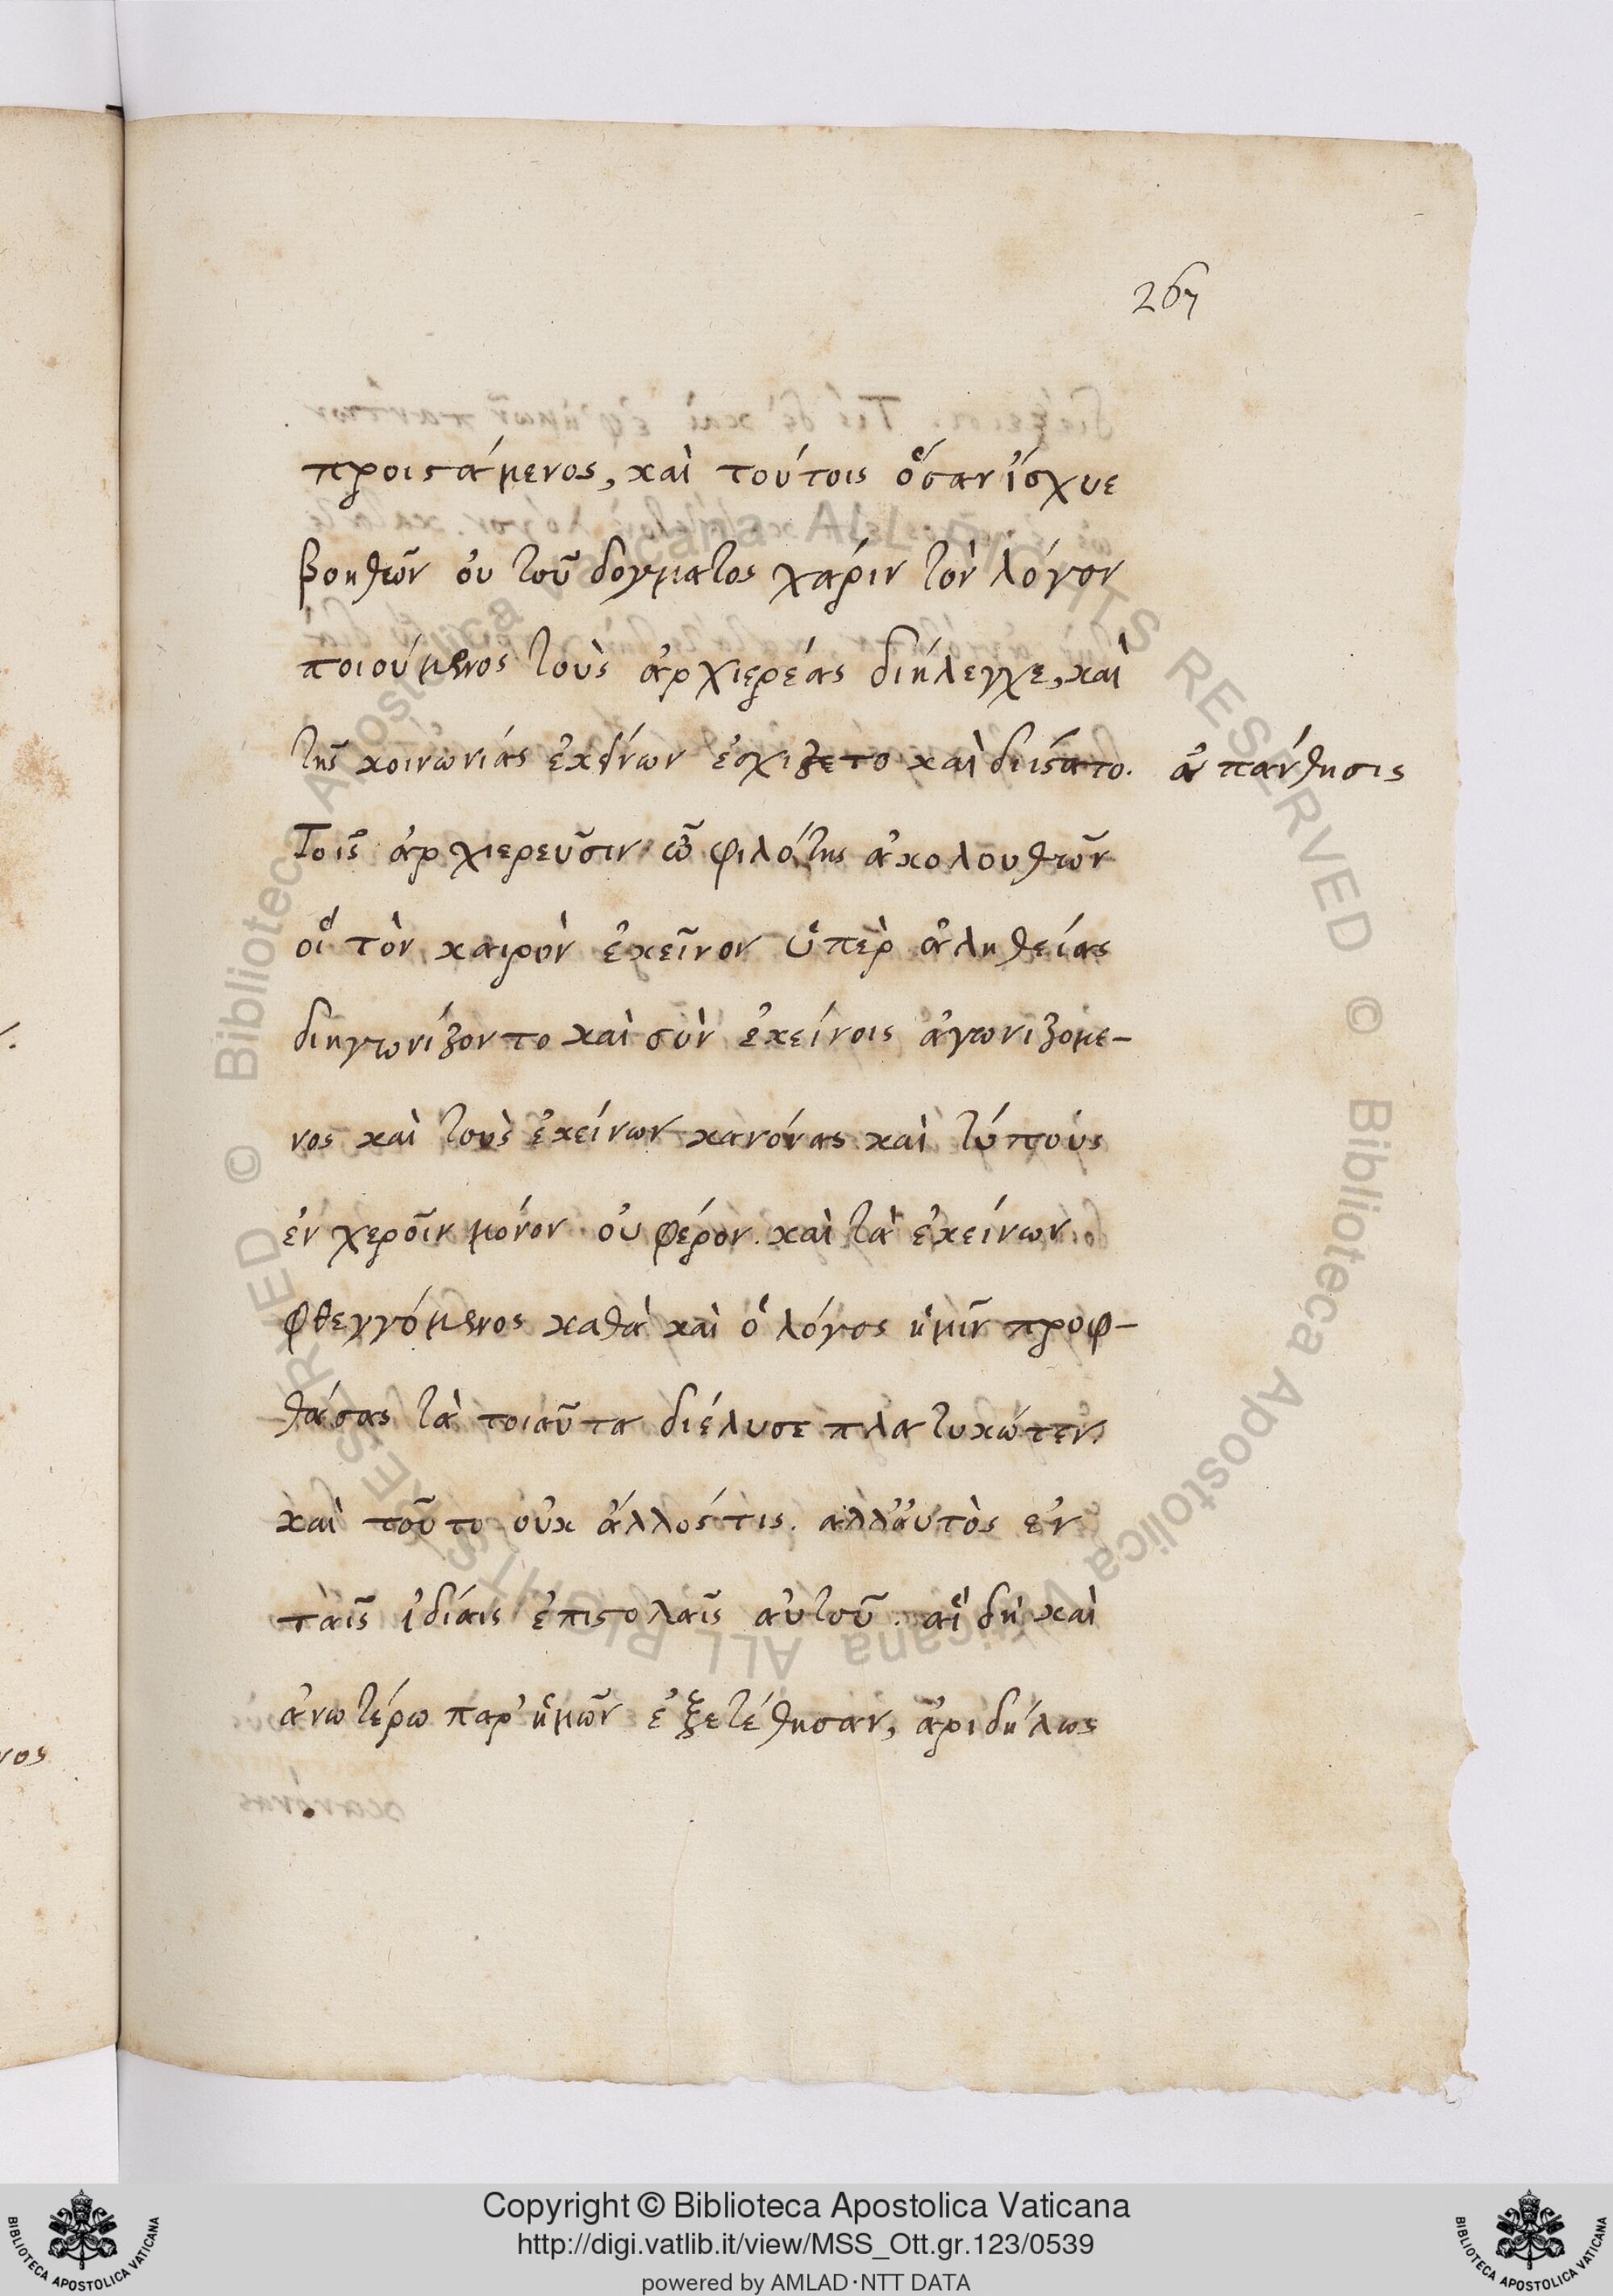 267
προιστάμενος, καὶ τούτοις ὅσαν ἴσχυε
βοηθῶν οὐ τοῦ δογματος χάριν τὸν λόγον
ποιούμενος τοὺς ἀρχιερέας διήλεγχε, καὶ
τῆς κοινωνίας ἐκείνων ἐσχίζετο καὶ διίστατο. ἀπάνθησις
Τοῖς ἀρχιερεῦσιν ὦ φιλότης ἀκολουθῶν
οἳ τὸν καιρὸν ἐκεῖνον ὑπὲρ ἀληθείας
διηγωνίζοντο καὶ σὺν ἐκείνοις ἀγωνιζομε-
νος καὶ τοὺς ἐκείνων κανόνας καὶ τύπους
ἐν χεροῖν μόνον οὐ φέρον. καὶ τὰ ἐκείνων
φθεγγόμενος καθὰ καὶ ὁ λόγος ἡμῖν προφ-
θάσας τὰ τοιαῦτα διέλυσε πλατυκώτεν.
καὶ τοῦτο οὐκ ἄλλος τις. αλλ' ἀυτὸς εν
ταῖς ἰδίαις ἐπιστολαῖς αὐτοῦ. αἳ δὴ καὶ
ἀνωτέρω παρ' ἡμῶν ἐξετέθησαν, ἀριδήλως
Copyright © Biblioteca Apostolica Vaticana
http://digi.vatlib.it/view/MSS_Ott.gr.123/0539
powered by AMLAD·NTT DATA